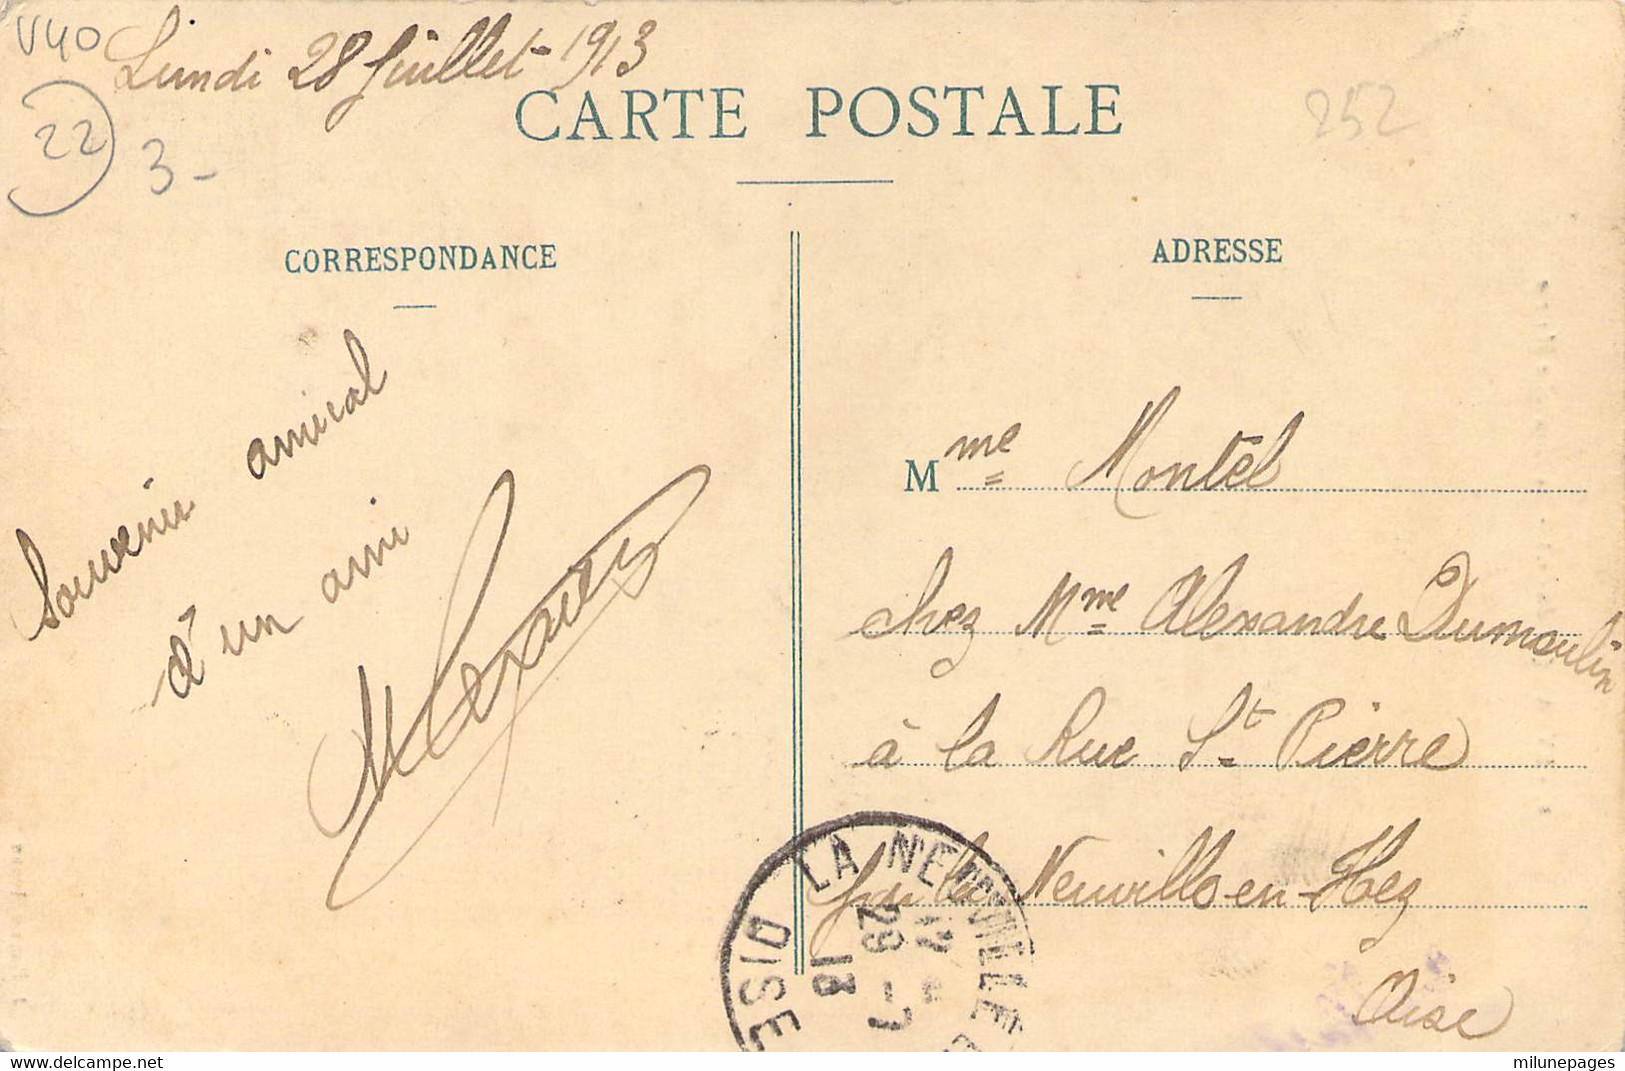 V40
Lundi 28 Juillet 1913
22
3 -
252
CARTE POSTALE
CORRESPONDANCE
ADRESSE
Souvenir amical
d'un ami
Mme Montel
chez Mme Alexandre Dumoulin
à la Rue St Pierre
par la Neuville-en-Hez
Oise
LA NEUVILLE
17
29 -7
13
OISE
milunepages